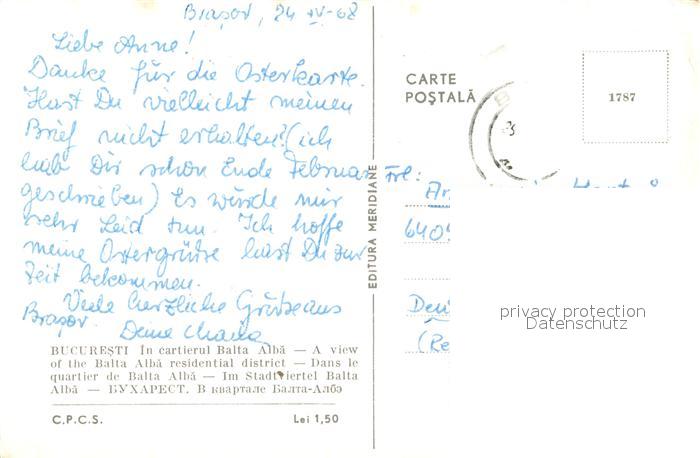 Brașov, 24 IV-68
Liebe Anne!
Danke für die Osterkarte.
Hast Du vielleicht meinen
Brief nicht erhalten? (ich
hab Dir schon Ende Februar
geschrieben) Es würde mir
sehr Leid tun. Ich hoffe
meine Ostergrüße hast Du zur
Zeit bekommen.
Viele herzliche Grüße aus
Brașov. Deine
BUCUREȘTI În cartierul Balta Albă — A view
of the Balta Albă residential district — Dans le
quartier de Balta Albă — Im Stadtviertel Balta
Albă — БУХАРЕСТ. В квартале Балта-Албэ
C.P.C.S. Lei 1,50
EDITURA MERIDIANE
CARTE
POȘTALĂ
1787
Frl:
privacy protection
Datenschutz